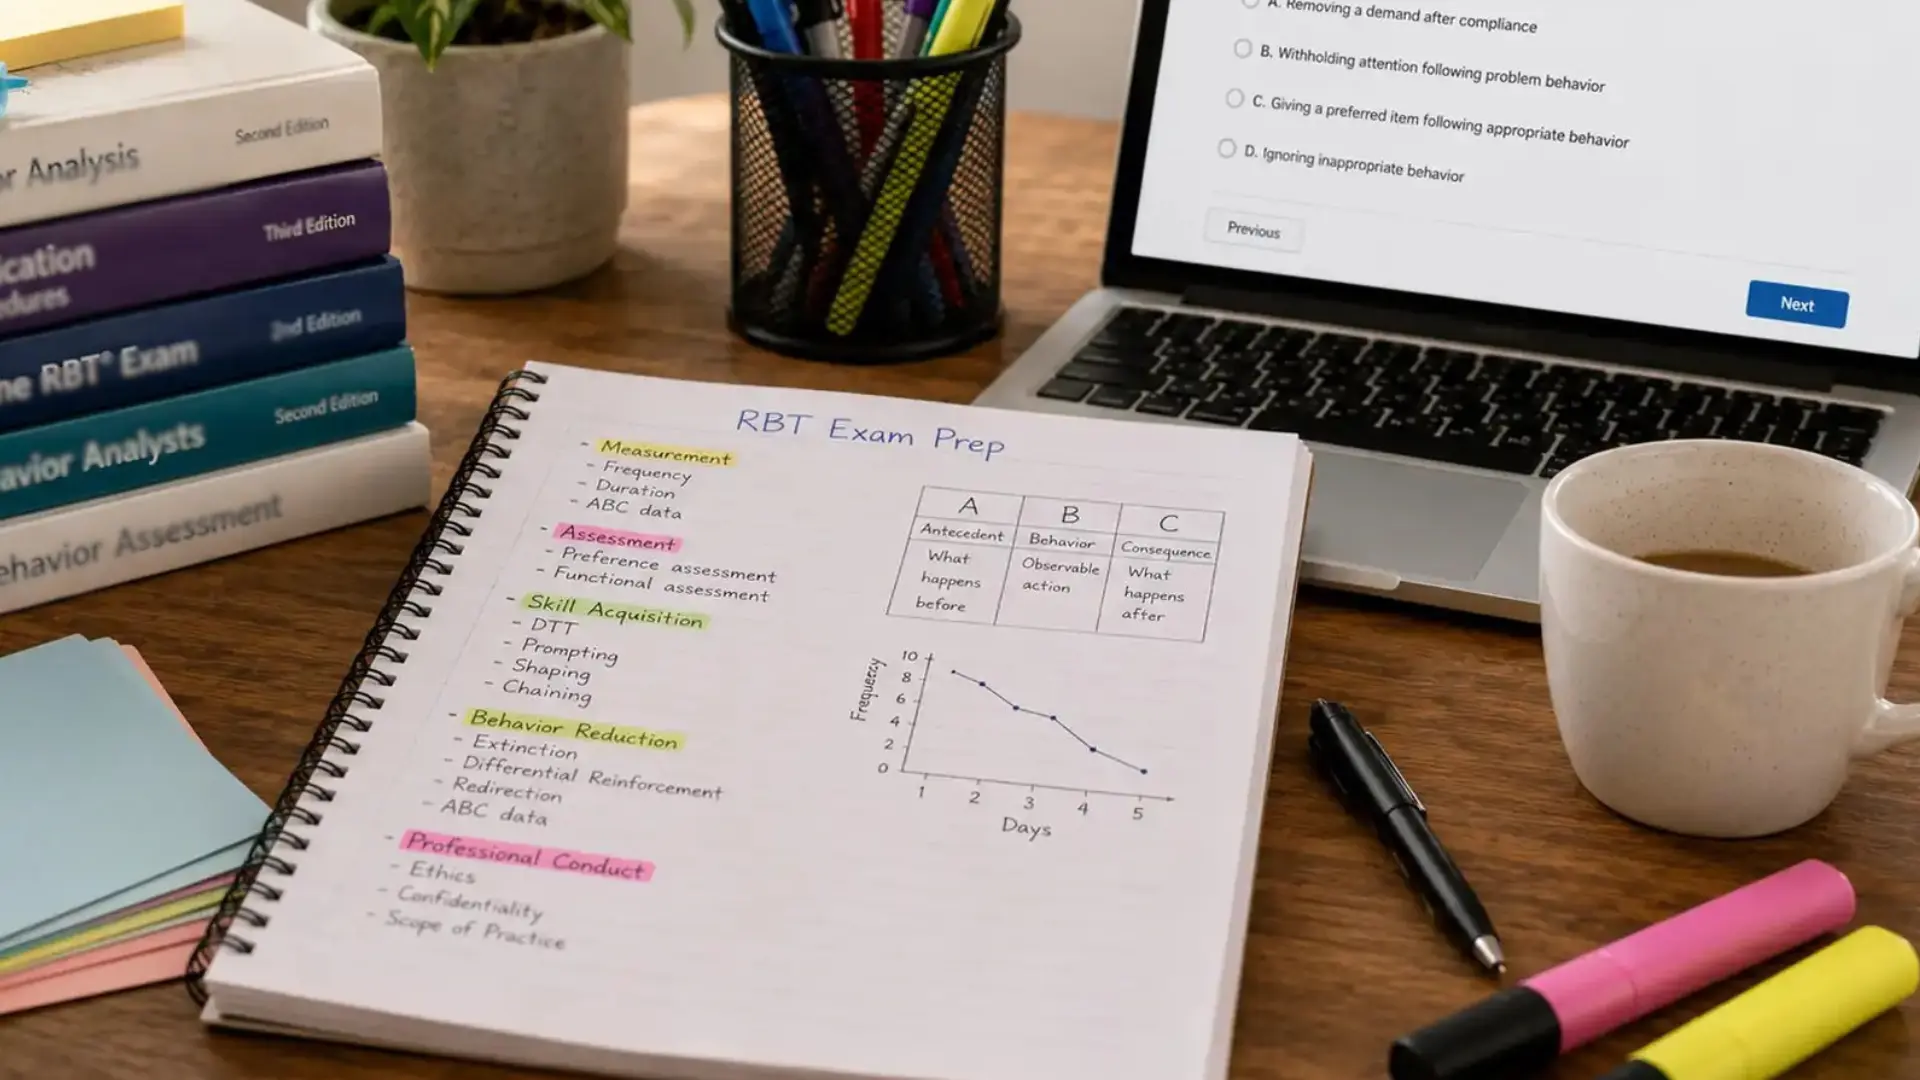 r Analysis
Second Edition
ication
edures
Third Edition
ne RBT® Exam
2nd Edition
avior Analysts
Second Edition
ehavior Assessment
A. Removing a demand after compliance
B. Withholding attention following problem behavior
C. Giving a preferred item following appropriate behavior
D. Ignoring inappropriate behavior
Previous
Next
RBT Exam Prep
- Measurement
- Frequency
- Duration
- ABC data
- Assessment
- Preference assessment
- Functional assessment
- Skill Acquisition
- DTT
- Prompting
- Shaping
- Chaining
- Behavior Reduction
- Extinction
- Differential Reinforcement
- Redirection
- ABC data
- Professional Conduct
- Ethics
- Confidentiality
- Scope of Practice
A B C
Antecedent Behavior Consequence
What happens before
Observable action
What happens after
Frequency
10
8
6
4
2
0
1 2 3 4 5
Days